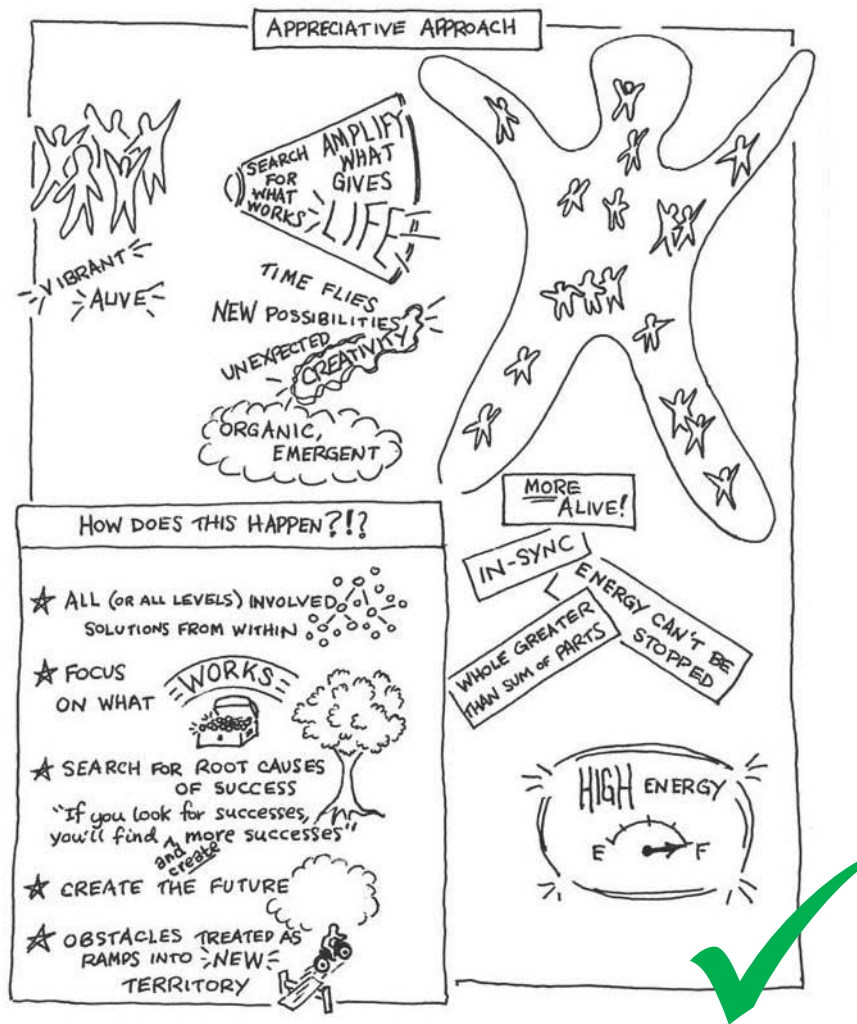 APPRECIATIVE APPROACH
VIBRANT
ALIVE
SEARCH
FOR
WHAT
WORKS
AMPLIFY
WHAT
GIVES
LIFE
TIME FLIES
NEW POSSIBILITIES
UNEXPECTED
CREATIVITY
ORGANIC,
EMERGENT
MORE
ALIVE!
IN-SYNC
ENERGY CAN'T BE
STOPPED
WHOLE GREATER
THAN SUM OF PARTS
HIGH ENERGY
E F
HOW DOES THIS HAPPEN?!?
ALL (OR ALL LEVELS) INVOLVED
SOLUTIONS FROM WITHIN
FOCUS
ON WHAT
WORKS
SEARCH FOR ROOT CAUSES
OF SUCCESS
"If you look for successes,
you'll find more successes"
and
create
CREATE THE FUTURE
OBSTACLES TREATED AS
RAMPS INTO NEW
TERRITORY